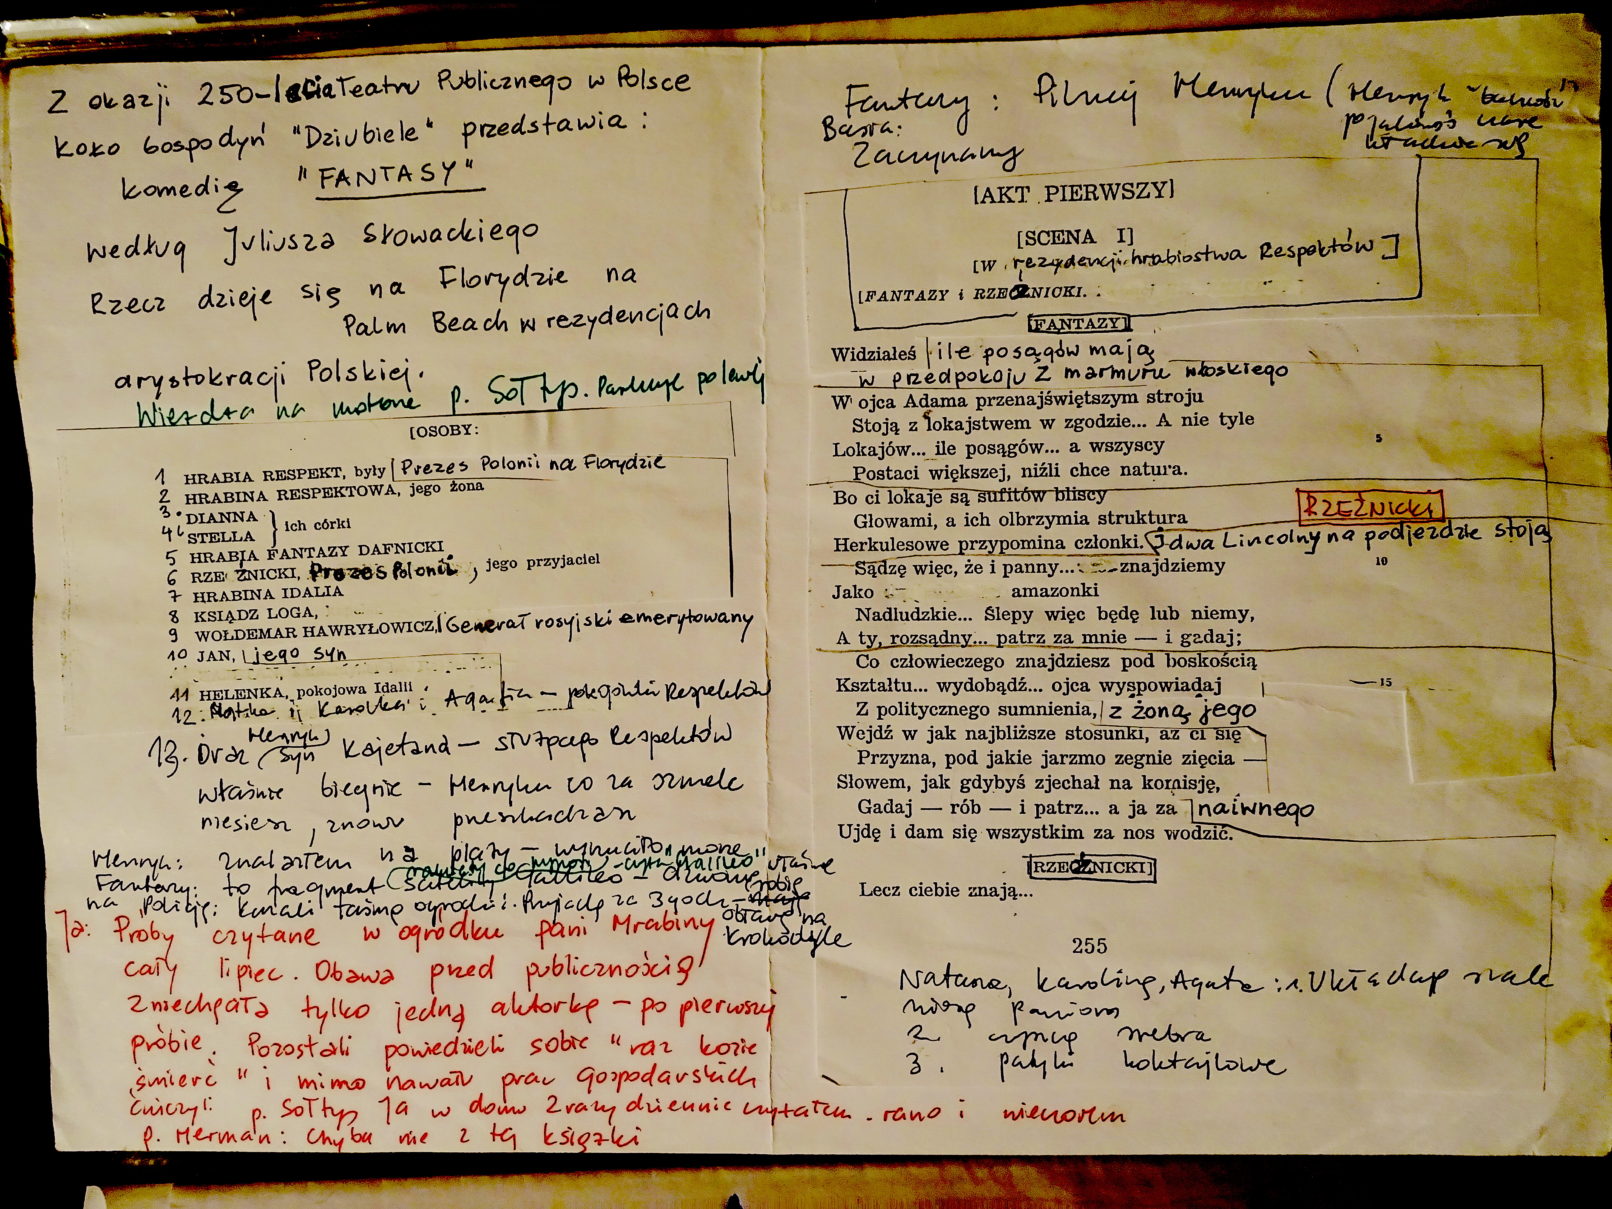 Z okazji 250-lecia Teatru Publicznego w Polsce
Koło Gospodyń "Dziubiele" przedstawia:
komedię "FANTASY"
według Juliusza Słowackiego
Rzecz dzieje się na Florydzie na
Palm Beach w rezydencjach
arystokracji Polskiej.
Wjeżdża na motorze p. Sołtys.
[OSOBY:
1 HRABIA RESPEKT, były Prezes Polonii na Florydzie
2 HRABINA RESPEKTOWA, jego żona
3. DIANNA
4 STELLA } ich córki
5 HRABIA FANTAZY DAFNICKI
6 RZEŹNICKI, Prezes Polonii, jego przyjaciel
7 HRABINA IDALIA
8 KSIĄDZ LOGA,
9 WOŁDEMAR HAWRYŁOWICZ, Generał rosyjski emerytowany
10 JAN, jego syn
11 HELENKA, pokojowa Idalii
12. i Karolka i Agatka - pokojówki Respektów
13. Oraz Henryk syn Kajetana - służącego Respektów
właśnie biegnie - Henryku co za szmelc
niesiesz, znowu przeszkadzasz
Henryk: znalazłem na plaży - wyrzuciło morze
Fantazy: to fragment
na Policję: kazali taśmą ogrodzić. Przyjadą za 3 godz - robią
obławę na
krokodyle
Ja: Próby czytane w ogródku pani Hrabiny
cały lipiec. Obawa przed publicznością
zniechęciła tylko jedną aktorkę - po pierwszej
próbie. Pozostali powiedzieli sobie "raz kozie
śmierć" i mimo nawału prac gospodarskich
ćwiczyli
p. Sołtys Ja w domu 2 razy dziennie czytałem. rano i wieczorem
p. Herman: Chyba nie z tej książki
Fantazy: Pilnuj Henryku (Henryk
Basia:
Zaczynamy
[AKT PIERWSZY]
[SCENA I]
[W rezydencji hrabiostwa Respektów]
[FANTAZY i RZEŹNICKI.
[FANTAZY]
Widziałeś ile posągów mają
w przedpokoju z marmuru włoskiego
W ojca Adama przenajświętszym stroju
Stoją z lokajstwem w zgodzie... A nie tyle
Lokajów... ile posągów... a wszyscy
5
Postaci większej, niźli chce natura.
Bo ci lokaje są sufitów bliscy
Głowami, a ich olbrzymia struktura
RZEŹNICKI
Herkulesowe przypomina członki. I dwa Lincolny na podjeździe stoją
Sądzę więc, że i panny... znajdziemy
10
Jako amazonki
Nadludzkie... Ślepy więc będę lub niemy,
A ty, rozsądny... patrz za mnie — i gadaj;
Co człowieczego znajdziesz pod boskością
Kształtu... wydobądź... ojca wyspowiadaj
15
Z politycznego sumnienia, z żoną jego
Wejdź w jak najbliższe stosunki, aż ci się
Przyzna, pod jakie jarzmo zegnie zięcia —
Słowem, jak gdybyś zjechał na komisję,
Gadaj — rób — i patrz... a ja za naiwnego
Ujdę i dam się wszystkim za nos wodzić.
[RZEŹNICKI]
Lecz ciebie znają...
255
Natasza, Karolina, Agata: 1. Układają
2. czyszczą srebra
3. patyki koktajlowe